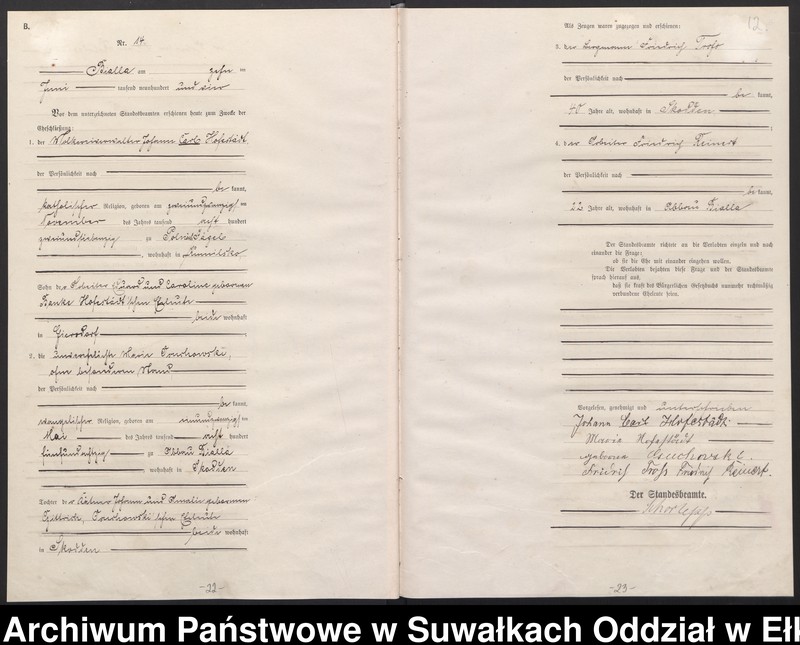 B.
Nr. 14.
Bialla am zehn ten
Juni tausend neunhundert und vier
Vor dem unterzeichneten Standesbeamten erschienen heute zum Zwecke der
Eheschließung:
1. der Molkereiverwalter Johann Carl Hofestädt
der Persönlichkeit nach
be kannt,
katholischer Religion, geboren am zweiundzwanzigsten
November des Jahres tausend acht hundert
zweiundsiebenzig zu
, wohnhaft in
Sohn des Arbeiters und Caroline geborenen
Hofestädt'schen Eheleute
beide wohnhaft
in Giersdorf
2. die Marie
ohne besonderen Stand
der Persönlichkeit nach
be kannt,
evangelischer Religion, geboren am neunundzwanzigsten
Mai des Jahres tausend acht hundert
fünfundachtzig zu Abbau Bialla
wohnhaft in Skodden
Tochter des Johann und Amalie geborenen
'schen Eheleute
beide wohnhaft
in Skodden
-22-
12.
Als Zeugen waren zugezogen und erschienen:
3. der Friedrich Troß
der Persönlichkeit nach
be kannt,
40 Jahre alt, wohnhaft in Skodden
4. der Arbeiter Friedrich Reinert
der Persönlichkeit nach
be kannt,
22 Jahre alt, wohnhaft in Abbau Bialla
Der Standesbeamte richtete an die Verlobten einzeln und nach
einander die Frage:
ob sie die Ehe mit einander eingehen wollen.
Die Verlobten bejahten diese Frage und der Standesbeamte
sprach hierauf aus,
daß sie kraft des Bürgerlichen Gesetzbuchs nunmehr rechtmäßig
verbundene Eheleute seien.
Vorgelesen, genehmigt und unterschrieben
Johann Carl Hofestädt
Marie Hofestädt
geborene
Friedrich Troß Friedrich Reinert.
Der Standesbeamte.
-23-
Archiwum Państwowe w Suwałkach Oddział w Ełk